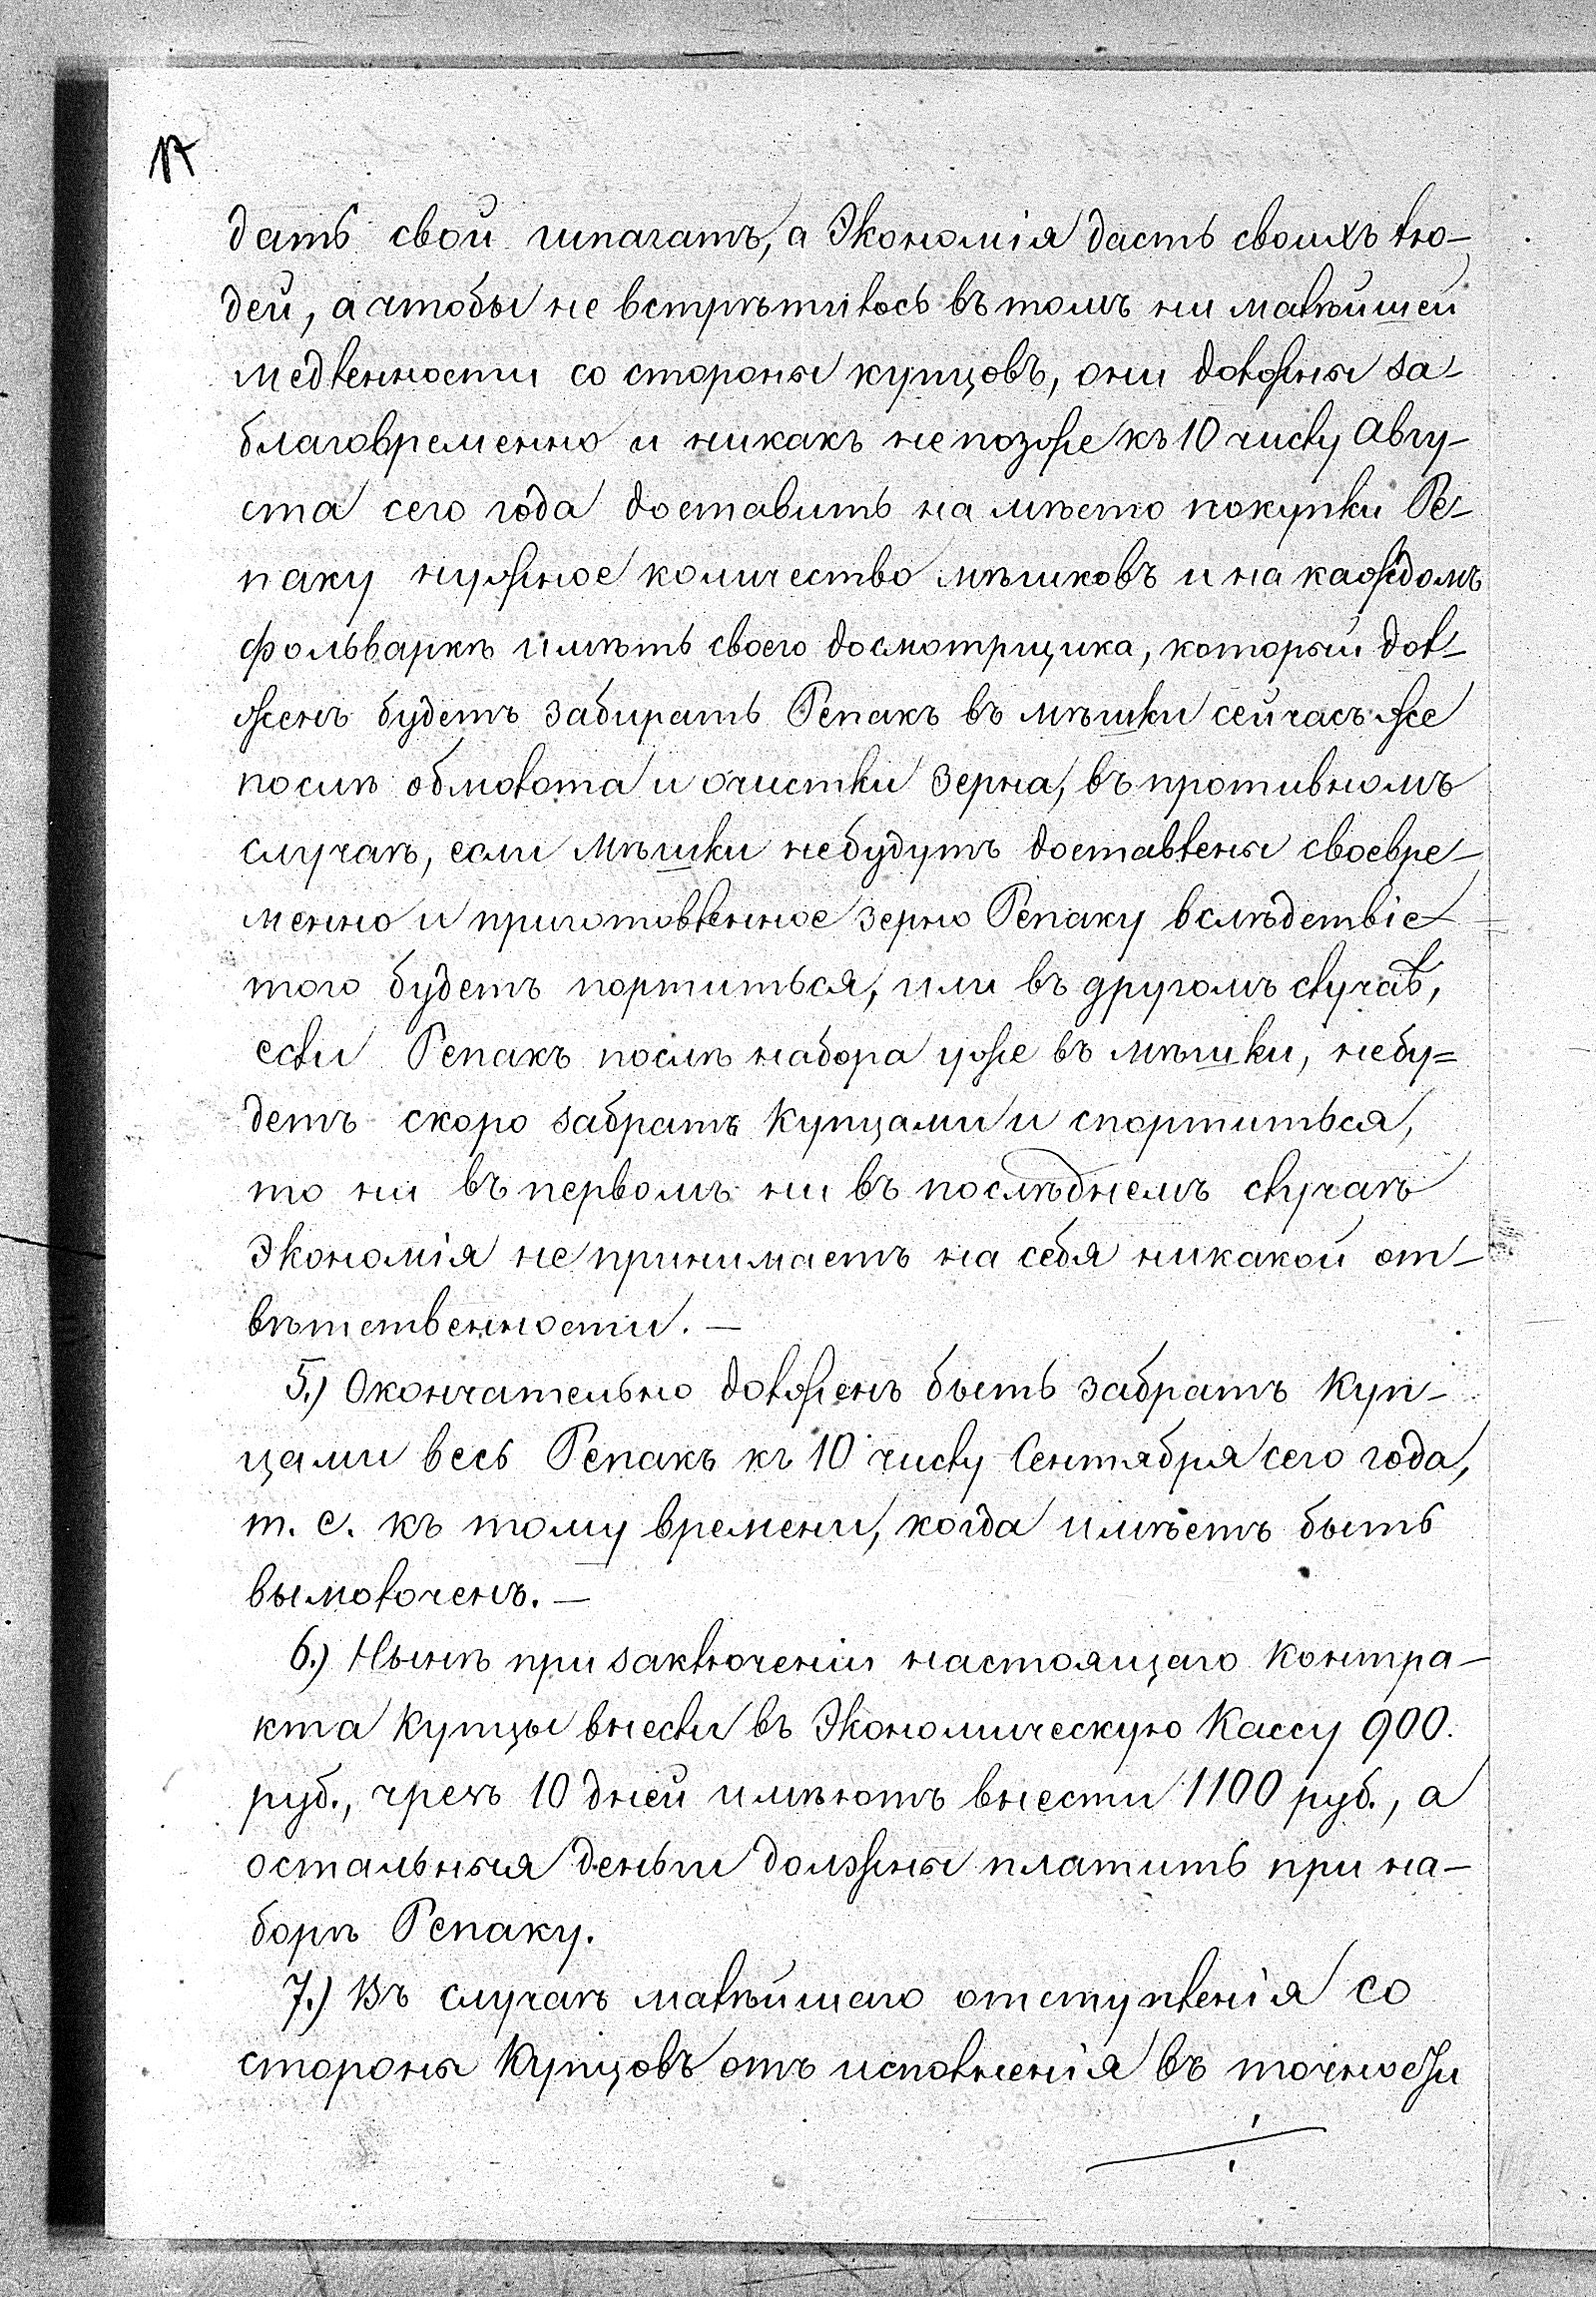 17
дать свой шпагатъ, а Экономія дастъ своихъ лю-
дей, а чтобы не встрѣтилось въ томъ ни малѣйшей
медленности со стороны купцовъ, они должны за-
благовременно и никакъ непозже къ 10 числу Авгу-
ста сего года доставить на мѣсто покупки Ре-
паку нужное количество мѣшковъ и на каждомъ
фольваркѣ имѣть своего досмотрщика, который дол-
женъ будетъ забирать Репакъ въ мѣшки сейчасъ же
послѣ обмолота и очистки зерна, въ противномъ
случаѣ, если мѣшки небудутъ доставлены своевре-
менно и приготовленное зерно Репаку вслѣдствіе
того будетъ портиться, или въ другомъ случаѣ,
если Репакъ послѣ набора уже въ мѣшки, небу=
детъ скоро забратъ Купцами и спортиться,
то ни въ первомъ ни въ послѣднемъ случаѣ
Экономія не принимаетъ на себя никакой от-
вѣтственности. —
5.) Окончательно долженъ быть забратъ Куп-
цами весь Репакъ къ 10 числу Сентября сего года,
т. е. къ тому времени, когда имѣетъ быть
вымолоченъ. —
6.) Нынѣ при заключеніи настоящаго Контра-
кта Купцы внесли въ Экономическую Кассу 900.
руб., чрезъ 10 дней имѣютъ внести 1100 руб., а
остальныя деньги должны платить при на-
борѣ Репаку.
7.) Въ случаѣ малѣйшаго отступленія со
стороны Купцовъ отъ исполненія въ точности